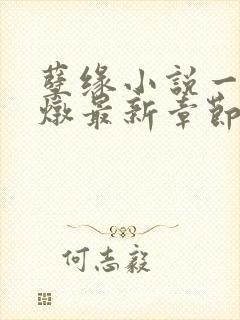 孽缘小說一
燉最新章節
何志毅